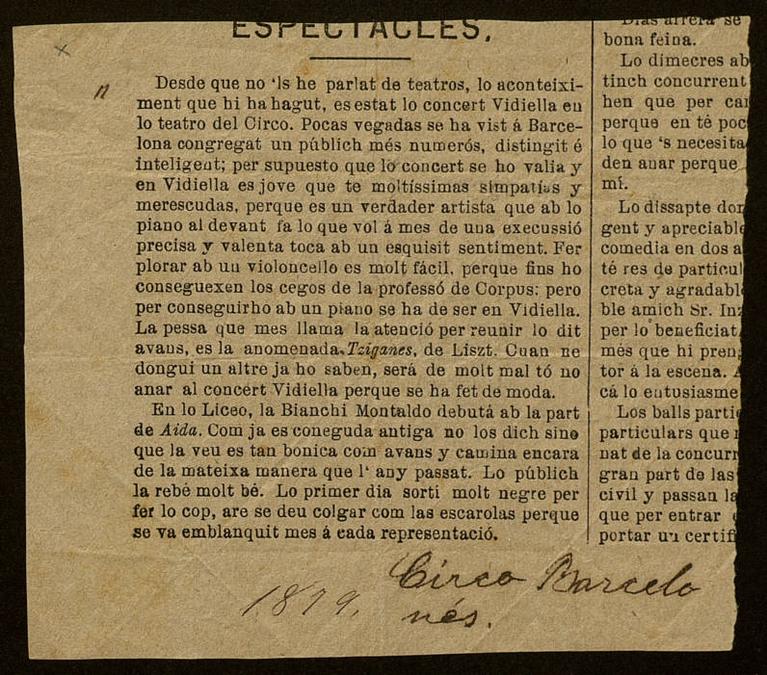 ESPECTACLES.
Desde que no 'ls he parlat de teatros, lo aconteixi-
ment que hi ha hagut, es estat lo concert Vidiella en
lo teatro del Circo. Pocas vegadas se ha vist á Barce-
lona congregat un públich més numerós, distingit é
inteligent; per supuesto que lo concert se ho valia y
en Vidiella es jove que te moltíssimas simpatías y
merescudas, perque es un verdader artista que ab lo
piano al devant fa lo que vol á mes de una execussió
precisa y valenta toca ab un esquisit sentiment. Fer
plorar ab un violoncello es molt fácil, perque fins ho
conseguexen los cegos de la professó de Corpus; pero
per conseguirho ab un piano se ha de ser en Vidiella.
La pessa que mes llama la atenció per reunir lo dit
avans, es la anomenada Tziganes, de Liszt. Cuan ne
dongui un altre ja ho saben, será de molt mal tó no
anar al concert Vidiella perque se ha fet de moda.
En lo Liceo, la Bianchi Montaldo debutá ab la part
de Aida. Com ja es coneguda antiga no los dich sino
que la veu es tan bonica com avans y camina encara
de la mateixa manera que l' any passat. Lo públich
la rebé molt bé. Lo primer dia sortí molt negre per
fer lo cop, are se deu colgar com las escarolas perque
se va emblanquit mes á cada representació.
Dias arrera se
bona feina.
Lo dimecres ab
tinch concurrent
hen que per ca
perque en té poc
lo que 's necesita
den anar perque
mí.
Lo dissapte don
gent y apreciable
comedia en dos a
té res de particul
creta y agradabl
ble amich Sr. In
per lo beneficiat
més que hi pren
tor á la escena.
cá lo entusiasme
Los balls parti
particulars que
nat de la concurr
gran part de las
civil y passan la
que per entrar
portar un certif
1879. Circo Barcelo
nés.